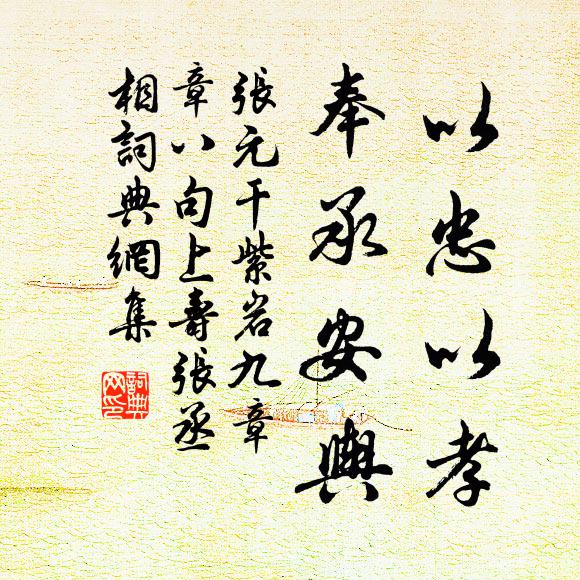 以忠以孝
奉承安輿
張元干紫岩九章
章八句上壽張丞
相詞典網集
詞典网印